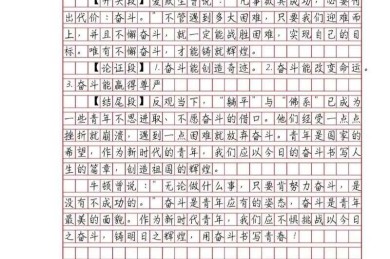 【开头段】爱威生曾说："凡事欲其成功，必要付
出代价：奋斗。"不管遇到多大困难，只要我们迎难而
上，并且不懈奋斗，就一定能战胜困难，实现自己的目
标。唯有不懈奋斗，才能铸就辉煌。
【论证段】1.奋斗能创造奇迹。2.奋斗能改变命运。
3.奋斗能赢得尊严
【结尾段】反观当下，"躺平"与"佛系"已成为
一些青年不思进取、不愿奋斗的借口。他们经受一点点
挫折就崩溃，遇到一点困难就放弃奋斗。青年是国家的
希望，作为新时代的青年，我们应以今日的奋斗书写人
生的笔章，创造祖国的辉煌。
牛顿曾说："无论做什么事，只要肯努力奋斗，是
没有不成功的。"奋斗是青年应有的姿态，奋斗是青年
最美的面貌。作为新时代青年，我们应不惧挑战以今日
之奋斗，铸明日之辉煌，用奋斗书写青春！